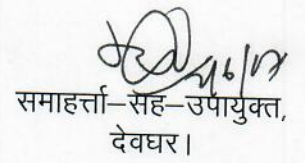 समाहर्त्ता–सह–उपायुक्त,
देवघर।